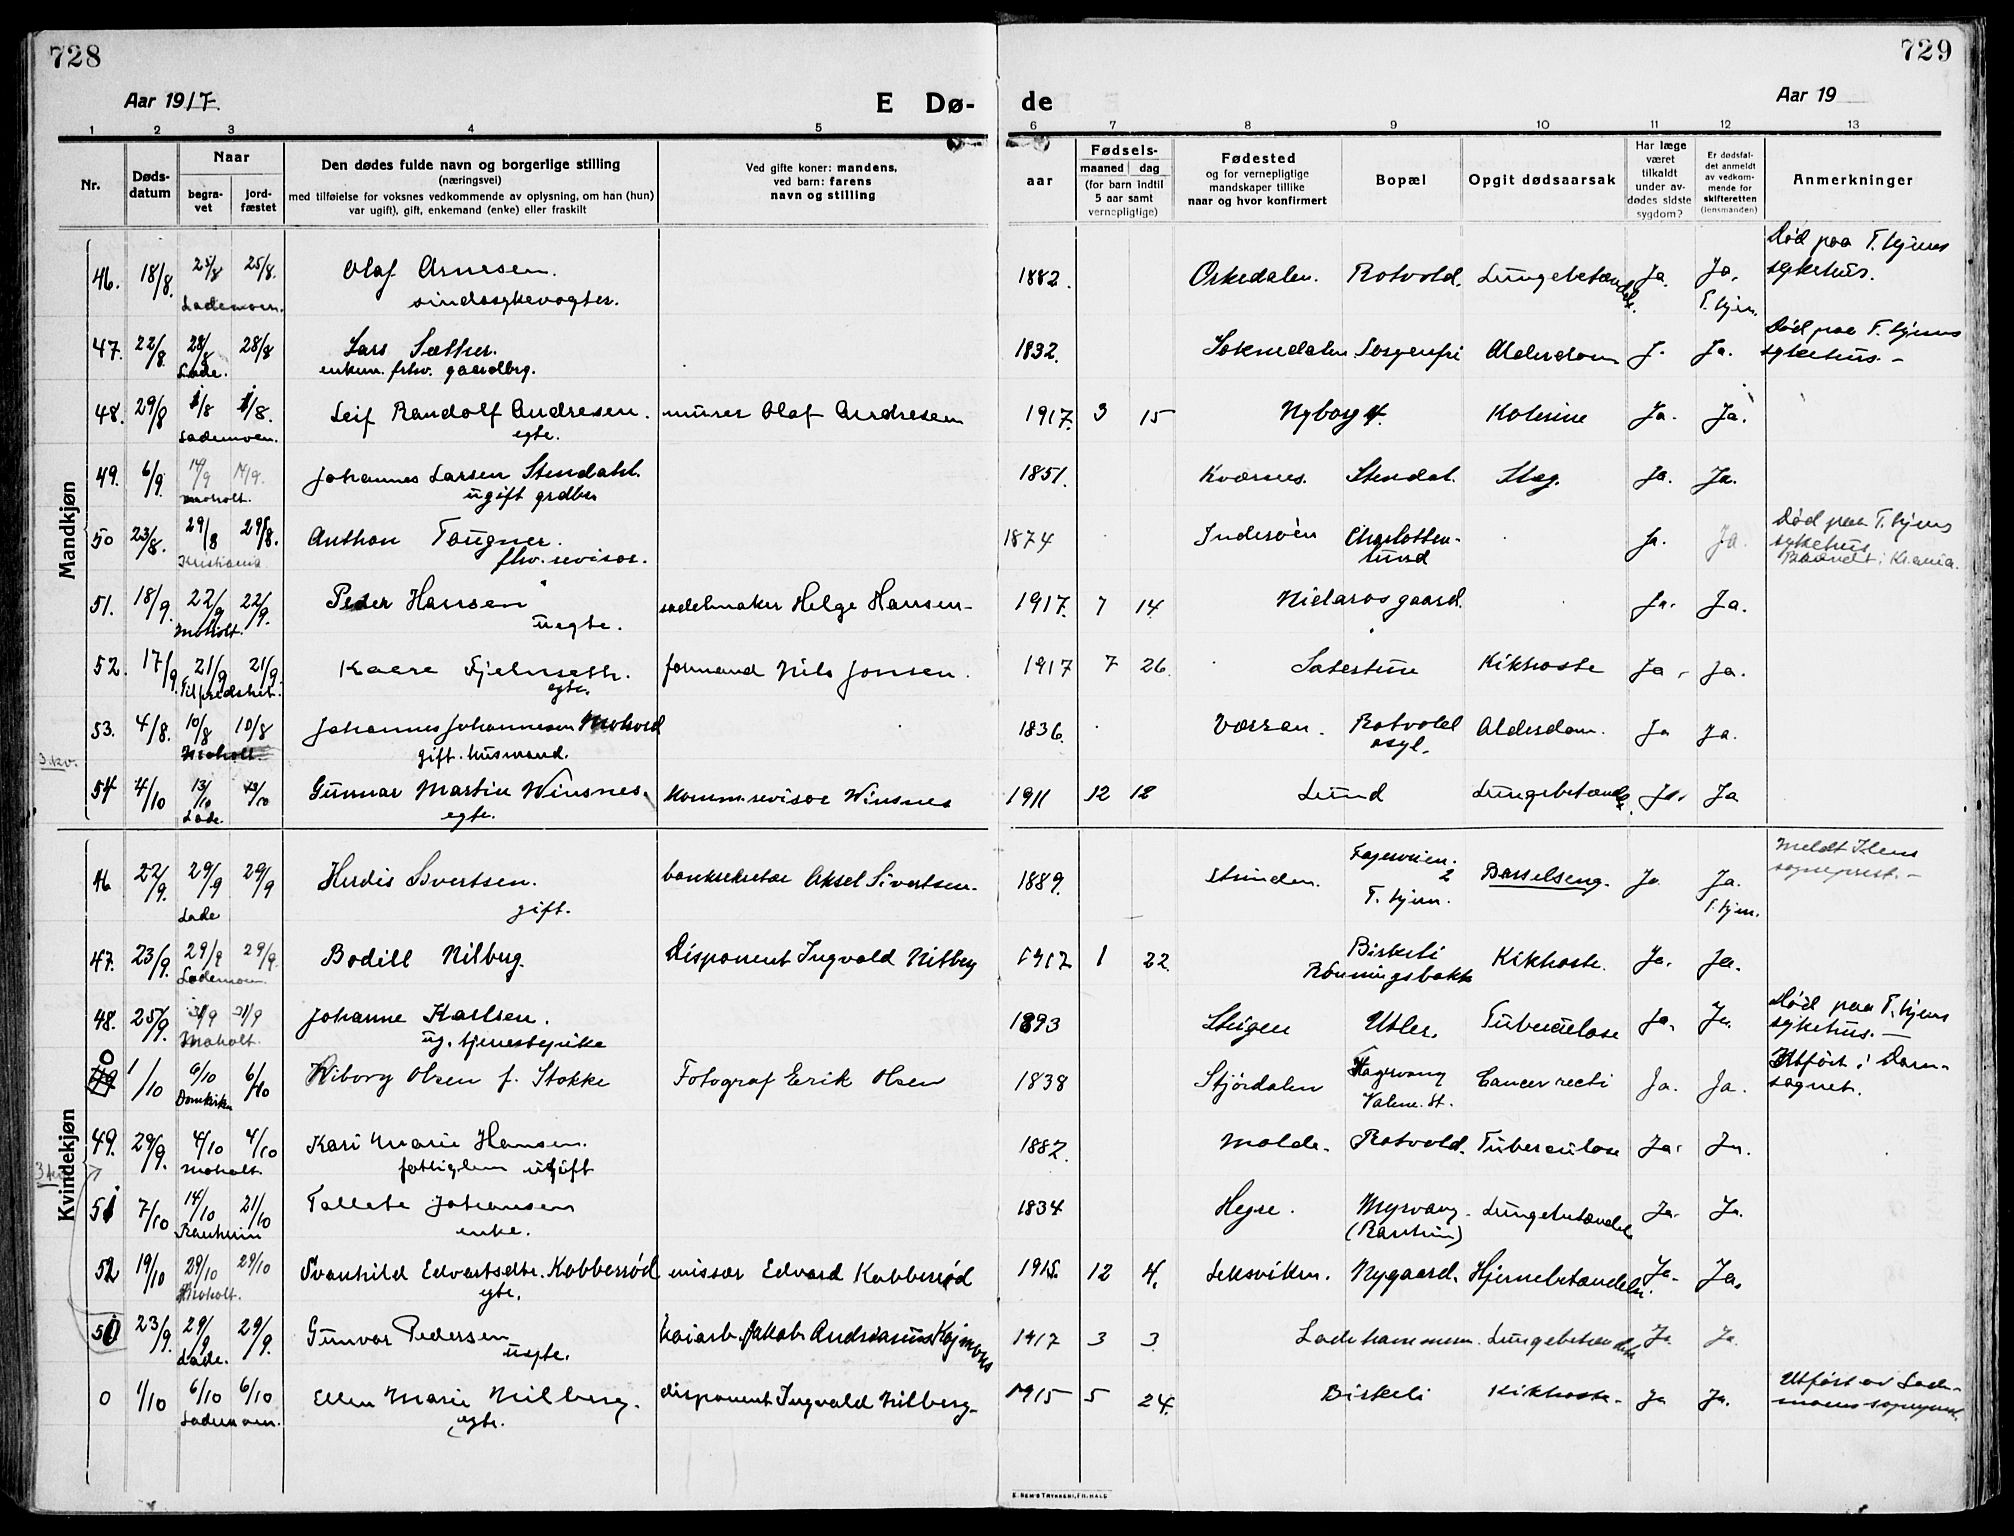 728
729
Aar 1917.
E Dø-
de
Aar 19
1 2 3 4 5
6 7 8 9 10 11 12 13
Nr.
Døds-
datum
Naar
begra-
vet
jord-
fæstet
Den dødes fulde navn og borgerlige stilling
(næringsvei)
med tilføielse for voksnes vedkommende av oplysning, om han (hun)
var ugift), gift, enkemand (enke) eller fraskilt
Ved gifte koner: mandens,
ved barn: farens
navn og stilling
aar
Fødsels-
maaned dag
(for barn indtil
5 aar samt
vernepligtige)
Fødested
og for vernepligtige
mandskaper tillike
naar og hvor konfirmert
Bopæl
Opgit dødsaarsak
Har læge
været
tilkaldt
under av-
dødes sidste
sygdom?
Er dødsfal-
det anmeldt
av vedkom-
mende for
skifteretten
(lensmanden)
Anmerkninger
Mandkjøn
46. 18/8. 25/8 25/8. Olaf Arnesen. 1882. Orkedalen. Rotvold. Lungebetændels. Ja. Ja. Død paa T.hjems
Lademoen. sindssykevogter. T.hjem. sykehus.
47. 22/8. 28/8 28/8 Lars Sæther. 1832. Soknedalen Sorgenfri Alderdom J. Ja. Død paa T.hjems
Lade. enkem. fhv. gaardbrg. sykehus. -
48. 29/8 1/8 1/8. Leif Randolf Andresen. murer Olaf Andresen 1917. 3 15 Nyborg 4. Kolerine Ja. Ja.
Lademoen. egte.
49. 6/9. 14/9 14/9. Johannes Larsen Stendahl. 1851. Kværnes. Stendal. Slag. Ja. Ja.
Moholt. ugift grdbr
50 23/8. 29/8 29/8. Anthon Tougner. 1874 Inderøen Charlotten- Ja. Ja. Død paa T.hjems
Kristiania fhv. revisor. lund sykehus
Brændt i Kr.ania.
51. 18/9. 22/9 22/9. Peder Hansen sadelmaker Helge Hansen- 1917. 7 14. Nidarosgaard. Ja. Ja.
Moholt. uegte.
52. 17/9. 21/9 21/9 Kaare Fjelnseth. formand Nils Jonsen. 1917 7 26. Ja. Ja. Kikhoste
Tilfredshet. egte.
53. 4/8. 10/8 10/8 Johannes Johannesen Moholt 1836. Værran. Rotvold Alderdom. Ja Ja.
Moholt. gift. husmand. asyl.
54 4/10 13/10 13/10 Gunnar Martin Winsnes. komm.revisor Winsnes 1911 12 18 Lund Lungebetændels. Ja. Ja
Lade. egte.
Kvindekjøn
46 22/9. 29/9 29/9 Herdis Sivertsen. banksekretær Aksel Sivertsen. 1889. Strinden. Fagerveien. 2 Barselseng. Ja Ja. Meldt Ilens
Lade gift. T.hjem. T.hjem. sogneprest. -
47. 23/9. 29/9 29/9. Bodill Nilberg. Disponent Ingvald Nilberg 1917 1 22. Birkeli Kikhoste. Ja. Ja.
Lademoen. Rønningsbakk
48. 25/9. 31/9 31/9 Johanne Karlsen. 1893 Steigen Utler. Tuberculose Ja. Ja. Død paa T.hjems
Moholt. ug. tjenestepike sykehus. -
0 1/10 6/10 6/10 Wiborg Olsen f. Stokke Fotograf Erik Olsen 1838 Stjørdalen Hagevang Cancer recti Ja. Ja. Utført i Dom-
49 Domkirken Valene. St. sognet.
49. 29/9. 4/10 4/10 Kari Marie Hansen. 1887. Molde. Rotvold. Tuberculose Ja. Ja.
Moholt. fattiglem ugift
51 7/10 14/10 21/10 Tallete Johansen 1834 Hegre. Myrvang. Lungebetændels Ja. Ja.
Ranheim enke. (Ranheim)
52 19/10 29/10 29/10 Svanhild Edvartsdtr. Kobberrød missær Edvard Kobberrød 1915. 12 4. Leksviken. Nygaard. Hjernebetændelse. Ja. Ja.
Moholt. egte.
50 23/9. 29/9 29/9. Gunvor Pedersen kaiarb. Jakob Andrianus 1917 3 3. Ladehammeren. Lungebetændels Ja Ja.
Lade. uegte.
0 1/10 6/10 6/10 Ellen Marie Nilberg. disponent Ingvald Nilberg- 1915 5 24. Birkeli Kikhoste. Ja Ja. Utført av Lade-
Lademoen. egte. moens sogneprest.
E. SEM'S TRYKKERI, FR.HALD